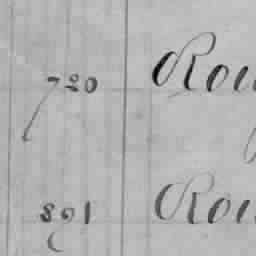 720 Rou
891 Rou